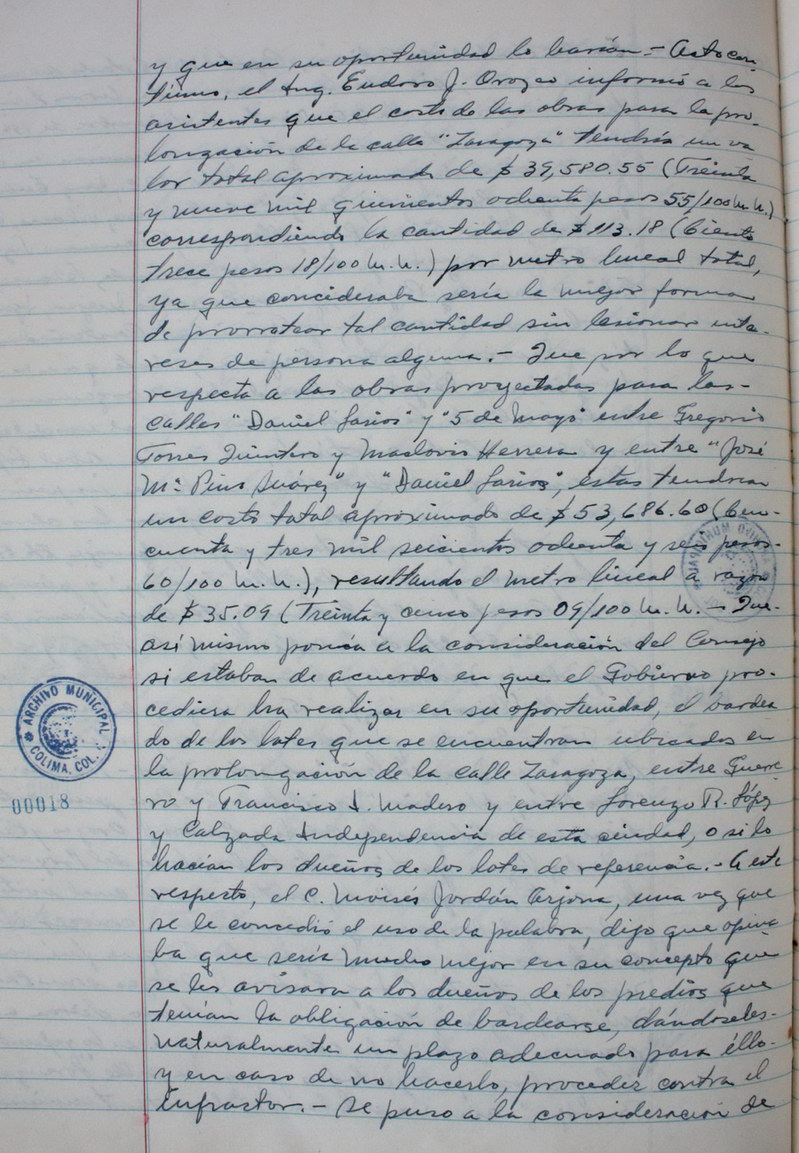 y que en su oportunidad lo harían.- Acto con-
tinuo, el Ing. Eudoro J. Orozco informó a los
asistentes que el costo de las obras para la pro-
longación de la calla "Zaragoza" tendría un va
lor total aproximado de $ 39,580.55 (Treinta
y nueve mil quinientos ochenta pesos 55/100 m.n.)
correspondiendo la cantidad de $ 113.18 (Ciento
trece pesos 18/100 m.n.) por metro lineal total,
ya que concideraba sería la mejor forma
de prorratear tal cantidad sin lesionar inte-
reses de persona alguna.- Que por lo que
respecta a las obras proyectadas para las-
calles "Daniel Larios" y "5 de Mayo" entre Gregorio
Torres Quintero y Maclovio Herrera y entre "José
Ma. Pino Suárez" y "Daniel Larios", estas tendrían
un costo total aproximado de $ 53,686.60 (Cin-
cuenta y tres mil seicientos ochenta y seis pesos-
60/100 m.n.), resultando el metro lineal a razón
de $ 35.09 (Treinta y cinco pesos 09/100 m.n.- Que-
así mismo ponía a la consideración del Consejo
si estaban de acuerdo en que el Gobierno pro-
cediera ha realizar en su oportunidad, el bardea
do de los lotes que se encuentran ubicados en
la prolongación de la calle Zaragoza, entre Guerre
ro y Francisco I. Madero y entre Lorenzo R. López
y Calzada Independencia de esta ciudad, o si lo
hacían los dueños de los lotes de referencia.- A este
respecto, el C. Moisés Jordán Arjona, una vez que
se le concedió el uso de la palabra, dijo que opina
ba que sería mucho mejor en su concepto que
se les avisara a los dueños de los predios que
tenían la obligación de bardearse, dándoseles-
naturalmente un plazo adecuado para éllo-
y en caso de no hacerlo, proceder contra el
infractor.- Se puso a la consideración de
ARCHIVO MUNICIPAL
COLIMA, COL.
00018